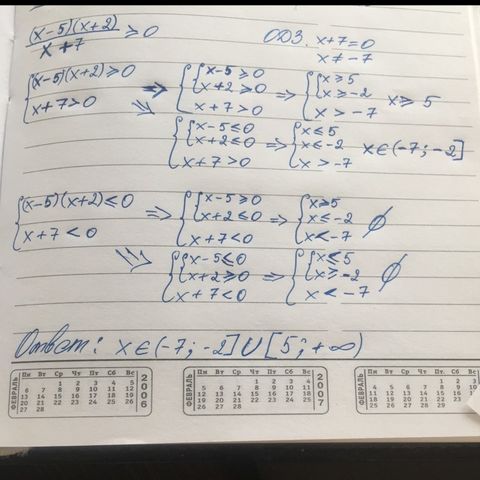 (x-5)(x+2)/x+7 ≥ 0 ОДЗ. x+7=0
x ≠ -7
{(x-5)(x+2) ≥ 0 ⇒ {x-5 ≥ 0 ⇒ {x ≥ 5
x+2 ≥ 0 x ≥ -2 x ≥ 5
x+7 > 0 x+7 > 0 x > -7
{x-5 ≤ 0 ⇒ {x ≤ 5
x+2 ≤ 0 x ≤ -2 x ∈ (-7; -2]
x+7 > 0 x > -7
{(x-5)(x+2) ≤ 0 ⇒ {x-5 ≥ 0 ⇒ {x ≥ 5
x+2 ≤ 0 x ≤ -2 ∅
x+7 < 0 x+7 < 0 x < -7
{x-5 ≤ 0 ⇒ {x ≤ 5
x+2 ≥ 0 x ≥ -2 ∅
x+7 < 0 x < -7
Ответ: x ∈ (-7; -2] ∪ [5; +∞)
ФЕВРАЛЬ 2006
Пн Вт Ср Чт Пт Сб Вс
1 2 3 4 5
6 7 8 9 10 11 12
13 14 15 16 17 18 19
20 21 22 23 24 25 26
27 28
ФЕВРАЛЬ 2007
Пн Вт Ср Чт Пт Сб Вс
1 2 3 4
5 6 7 8 9 10 11
12 13 14 15 16 17 18
19 20 21 22 23 24 25
26 27 28
ФЕВРАЛЬ
Пн Вт Ср Чт Пт Сб Вс
1 2 3
4 5 6 7 8 9 10
11 12 13 14 15 16
18 19 20 21 22 23
25 26 27 28 29